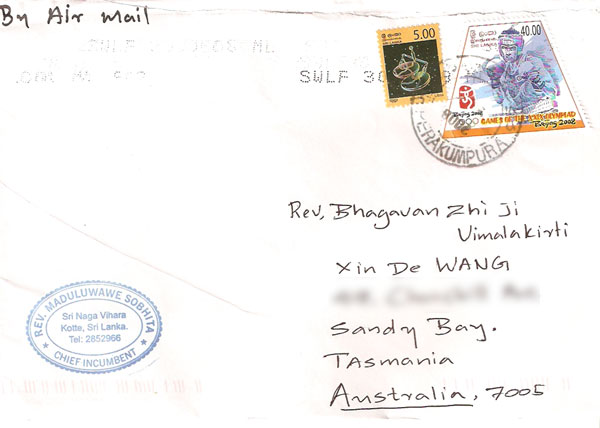 By Air Mail
5.00
SRI LANKA
40.00
SWLF 30
Beijing 2008
GAMES OF THE XXIX OLYMPIAD
Beijing 2008
ERAKUMPURA
Rev. Bhagavan Zhi Ji
Vimalakirti
Xin De WANG
Sandy Bay.
Tasmania
Australia, 7005
REV. MADULUWAWE SOBHITA
Sri Naga Vihara
Kotte, Sri Lanka.
Tel: 2852966
CHIEF INCUMBENT